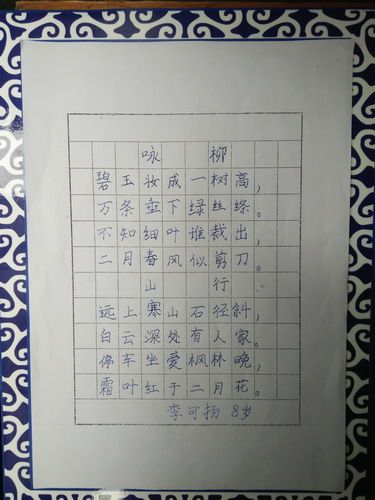 咏柳
碧玉妆成一树高，
万条垂下绿丝绦。
不知细叶谁裁出，
二月春风似剪刀。
山行
远上寒山石径斜，
白云深处有人家。
停车坐爱枫林晚，
霜叶红于二月花。
李可扬 8岁